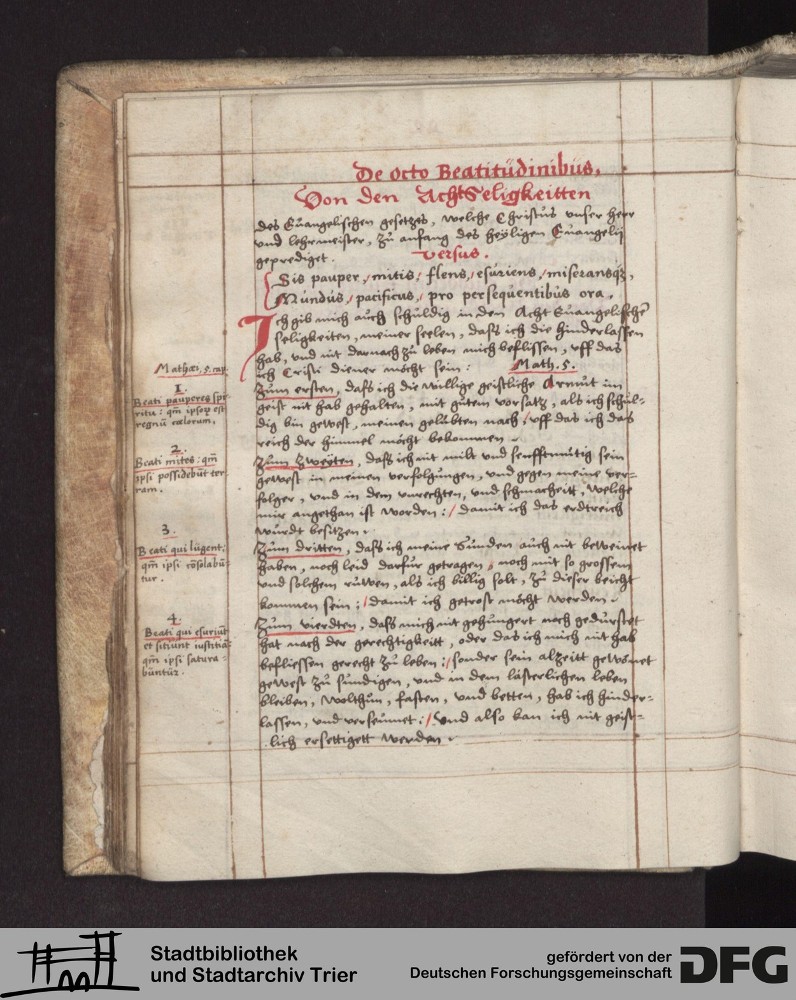 De octo Beatitudinibus.
Von den Acht Seligkeitten
des Euangelischen gesetzes, welche Christus unser herr
und lehrmeister, zu anfang des heyligen Euangelij
geprediget.
Versus.
Sis pauper, mitis, flens, esuriens, miseransq3,
Mundus, pacificus, pro persequentibus ora.
Ich gib mich auch schuldig in den Acht Euangelischen
seligkeiten, meiner seelen, dass ich die hinderlassen
hab, und nit darnach zu leben mich beflissen, uff das
ich Cristi diener möcht sein: Math. 5.
Zum ersten, dass ich die willige geistliche Armut im
geist nit hab gehalten, mit gutem vorsatz, als ich schul-
dig bin gewest, meinen gelübten nach, uff das ich das
reich der himmel möcht bekommen.
Zum Zweyten, dass ich nit milt und senfftmütig sein
gewest in meinen verfolgungen, und gegen meine ver-
folger, und in dem unrechten, und schmacheitt, welche
mir angethan ist worden: damit ich das erdtreich
würdt besitzen.
Zum dritten, dass ich meine Sünden auch nit beweinet
haben, noch leid darfür getragen, noch mit so grossem
und solchem ruwen, als ich billig solt, zu dieser beicht
kommen sein: damit ich getrost möcht werden.
Zum vierdten, dass mich nit gehüngert noch gedürstet
hat nach der gerechtigkeitt, oder das ich mich nit hab
beflissen gerecht zu leben: sonder sein alzeitt gewonet
gewest zu sündigen, und in dem lästerlichen leben
bleiben, wolthun, fasten, und betten, hab ich hinder-
lassen, und verseumet: Und also kan ich nit geist-
lich ersettigett werden.
Mathæi, 5. cap
1.
Beati pauperes spi
ritu: qm̄ ipsoꝝ est
regnū cœlorum,
2.
Beati mites: qm̄
ipsi possidebūt ter
ram.
3.
Beati qui lugent:
qm̄ ipsi cōsolabū
tur.
4.
Beati qui esuriūt
et sitiunt iustitiā
qm̄ ipsi satura-
buntur.
Stadtbibliothek
und Stadtarchiv Trier
gefördert von der
Deutschen Forschungsgemeinschaft
DFG